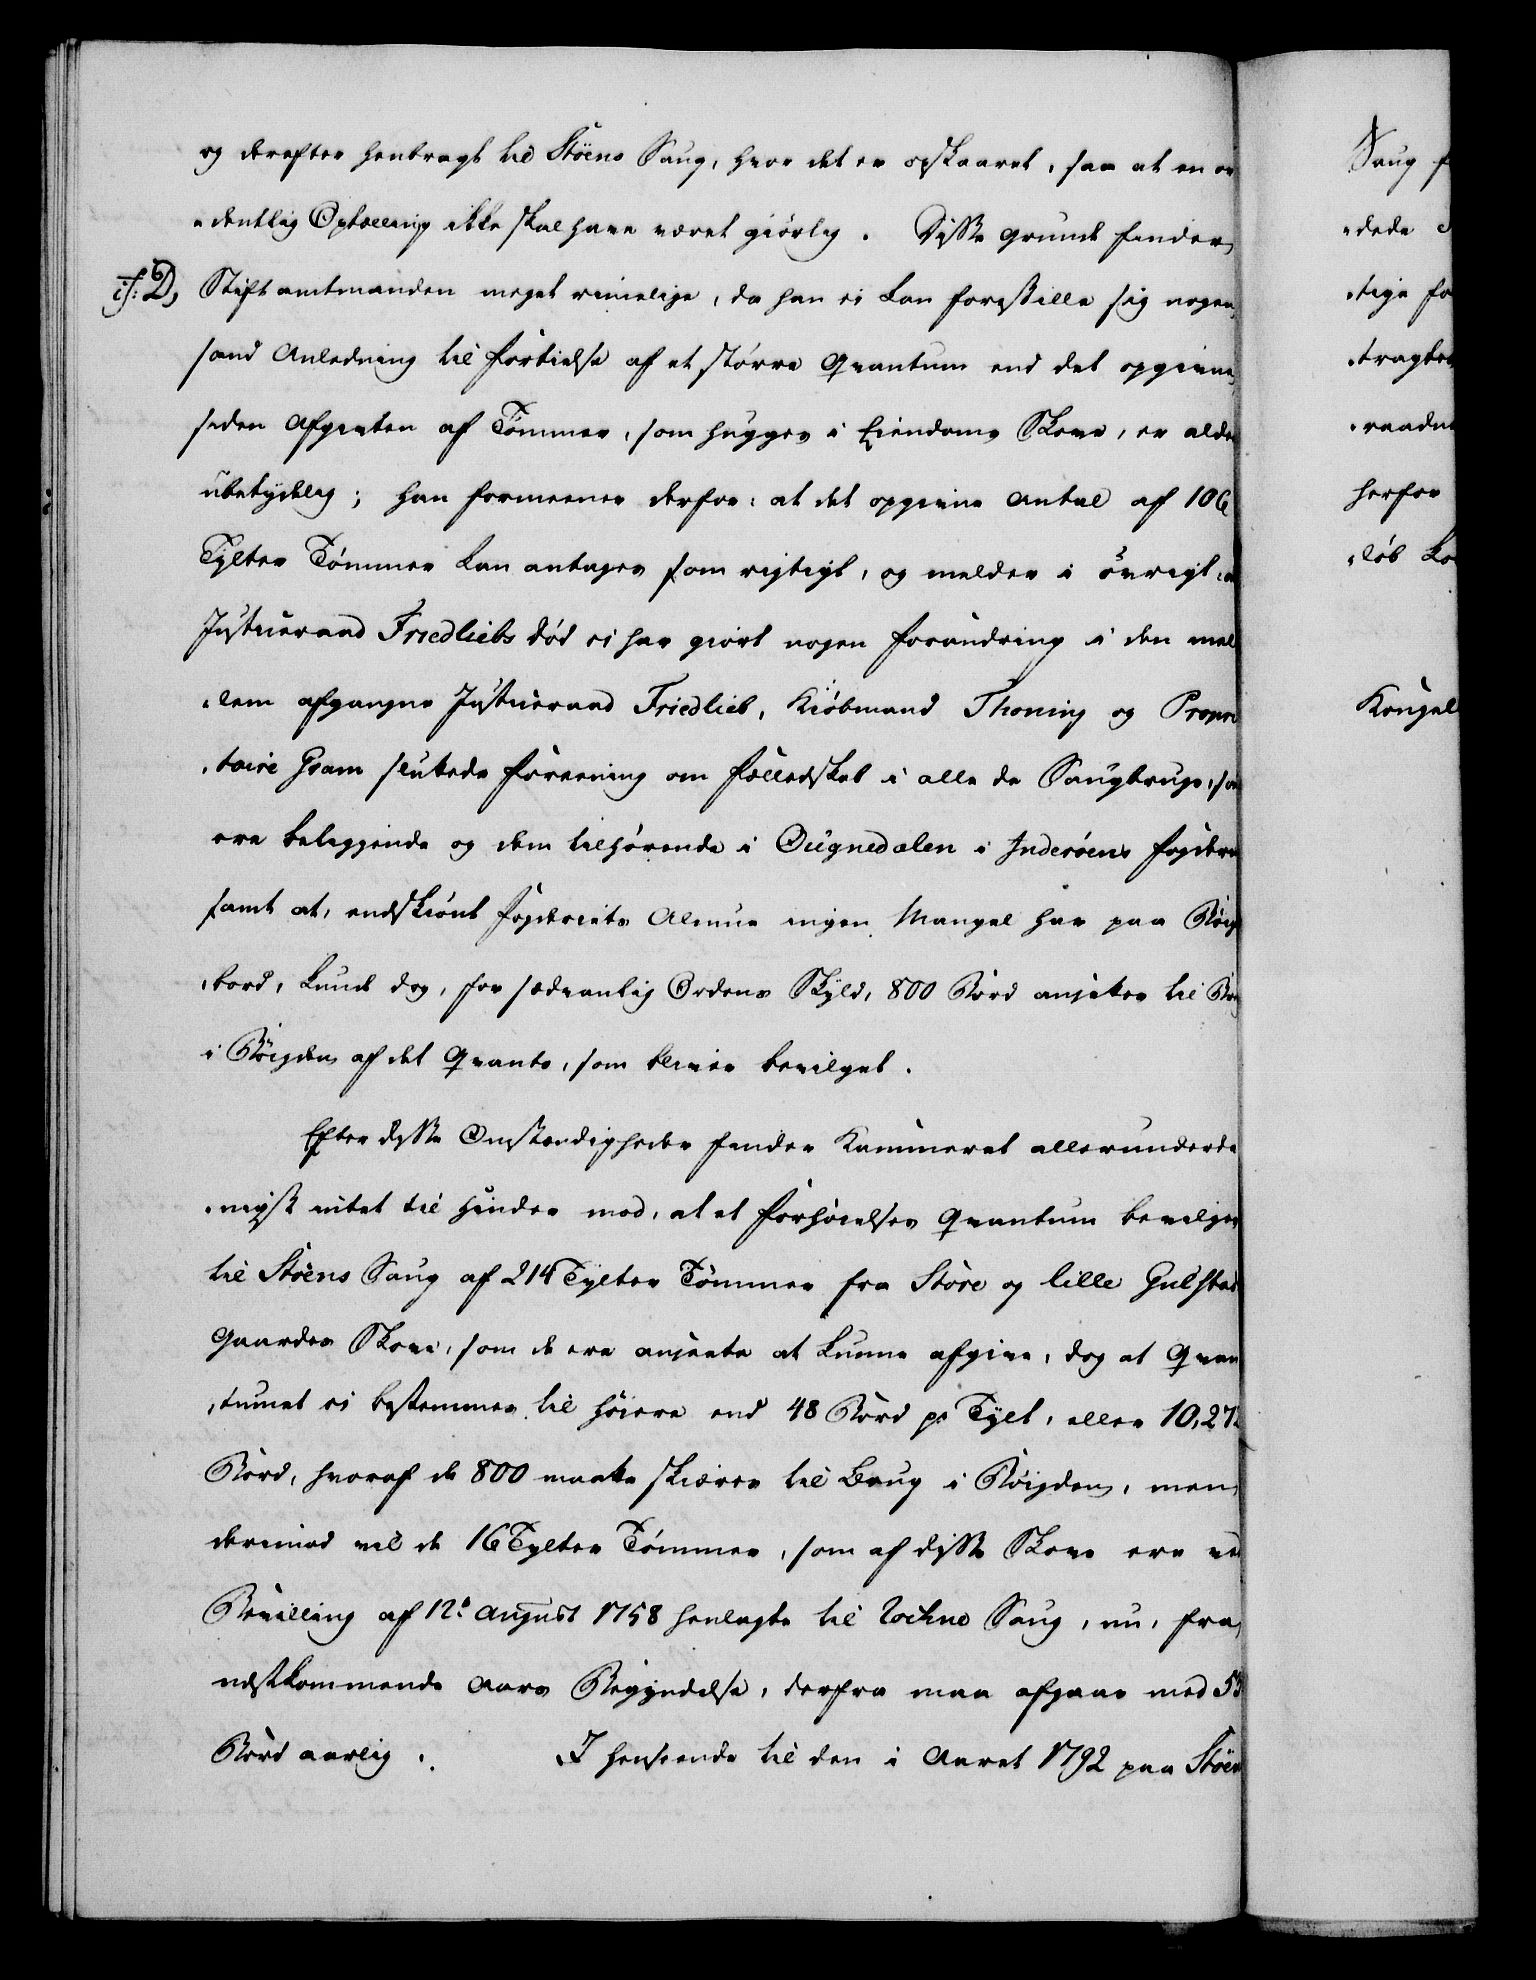 og derefter henbragt til Stöens Saug, hvor det er opskaaret, saa at en or
„dentlig Optælling ikke skal have været giörlig. Disse Grunde finder
if: D, Stiftamtmanden meget rimelige, da han ei kan forestille sig nogen
sand Anledning til fortielse af et större Qvantum end det opgivne,
siden Afgivten af Tömmer, som hugges i Eiendoms Skove, er alde
ubetydelig; han formeener derfor: at det opgivne Antal af 106
Tylter Tömmer kan antages som rigtigt, og melder i övrigt, at
Justiceraad Friedliebs Död ei har giort nogen forandring i den mel
„lem afgangne Justiceraad Friedlieb, Kiöbmand Thoning og Proprie
„taire Gram sluttede foreening om fælledskab i alle de Saugbruge, som
ere beliggende og dem tilhörende i Ougnedalen i Inderöens fogderie
samt at, endskiönt fogderiets Almue ingen Mangel har paa Bord
„bord, kunde dog, for sædvanlig Ordens Skyld, 800 Bord ansættes til Brug
i Böigden af det Qvanto, som bliver bevilget.
Efter disse Omstændigheder finder Kammeret allerunderda
„nigst intet til Hinder mod, at et forhöielses Qvantum bevilges
til Stöens Saug af 214 Tylter Tömmer fra Store og lille Gulstad
Gaardes Skove, som de ere ansatte at kunne afgive, dog at Qvan
„tumet ei bestemmes til höiere end 48 Bord pr Tylt, eller 10,272
Bord, hvoraf de 800 maatte skiæres til Brug i Böigden, men
derimod vil de 16 Tylter Tömmer, som af disse Skove ere ved
Bevilling af 12te August 1758 henlagte til Saug, nu, fra
næstkommende Aars Begyndelse, derfra maa afgaae med
Bord aarlig. I Henseende til den i Aaret 1792 paa Stöens
Saug
„dede
„tige
„tragtet
„raadne
herfor
„löb
Kongel